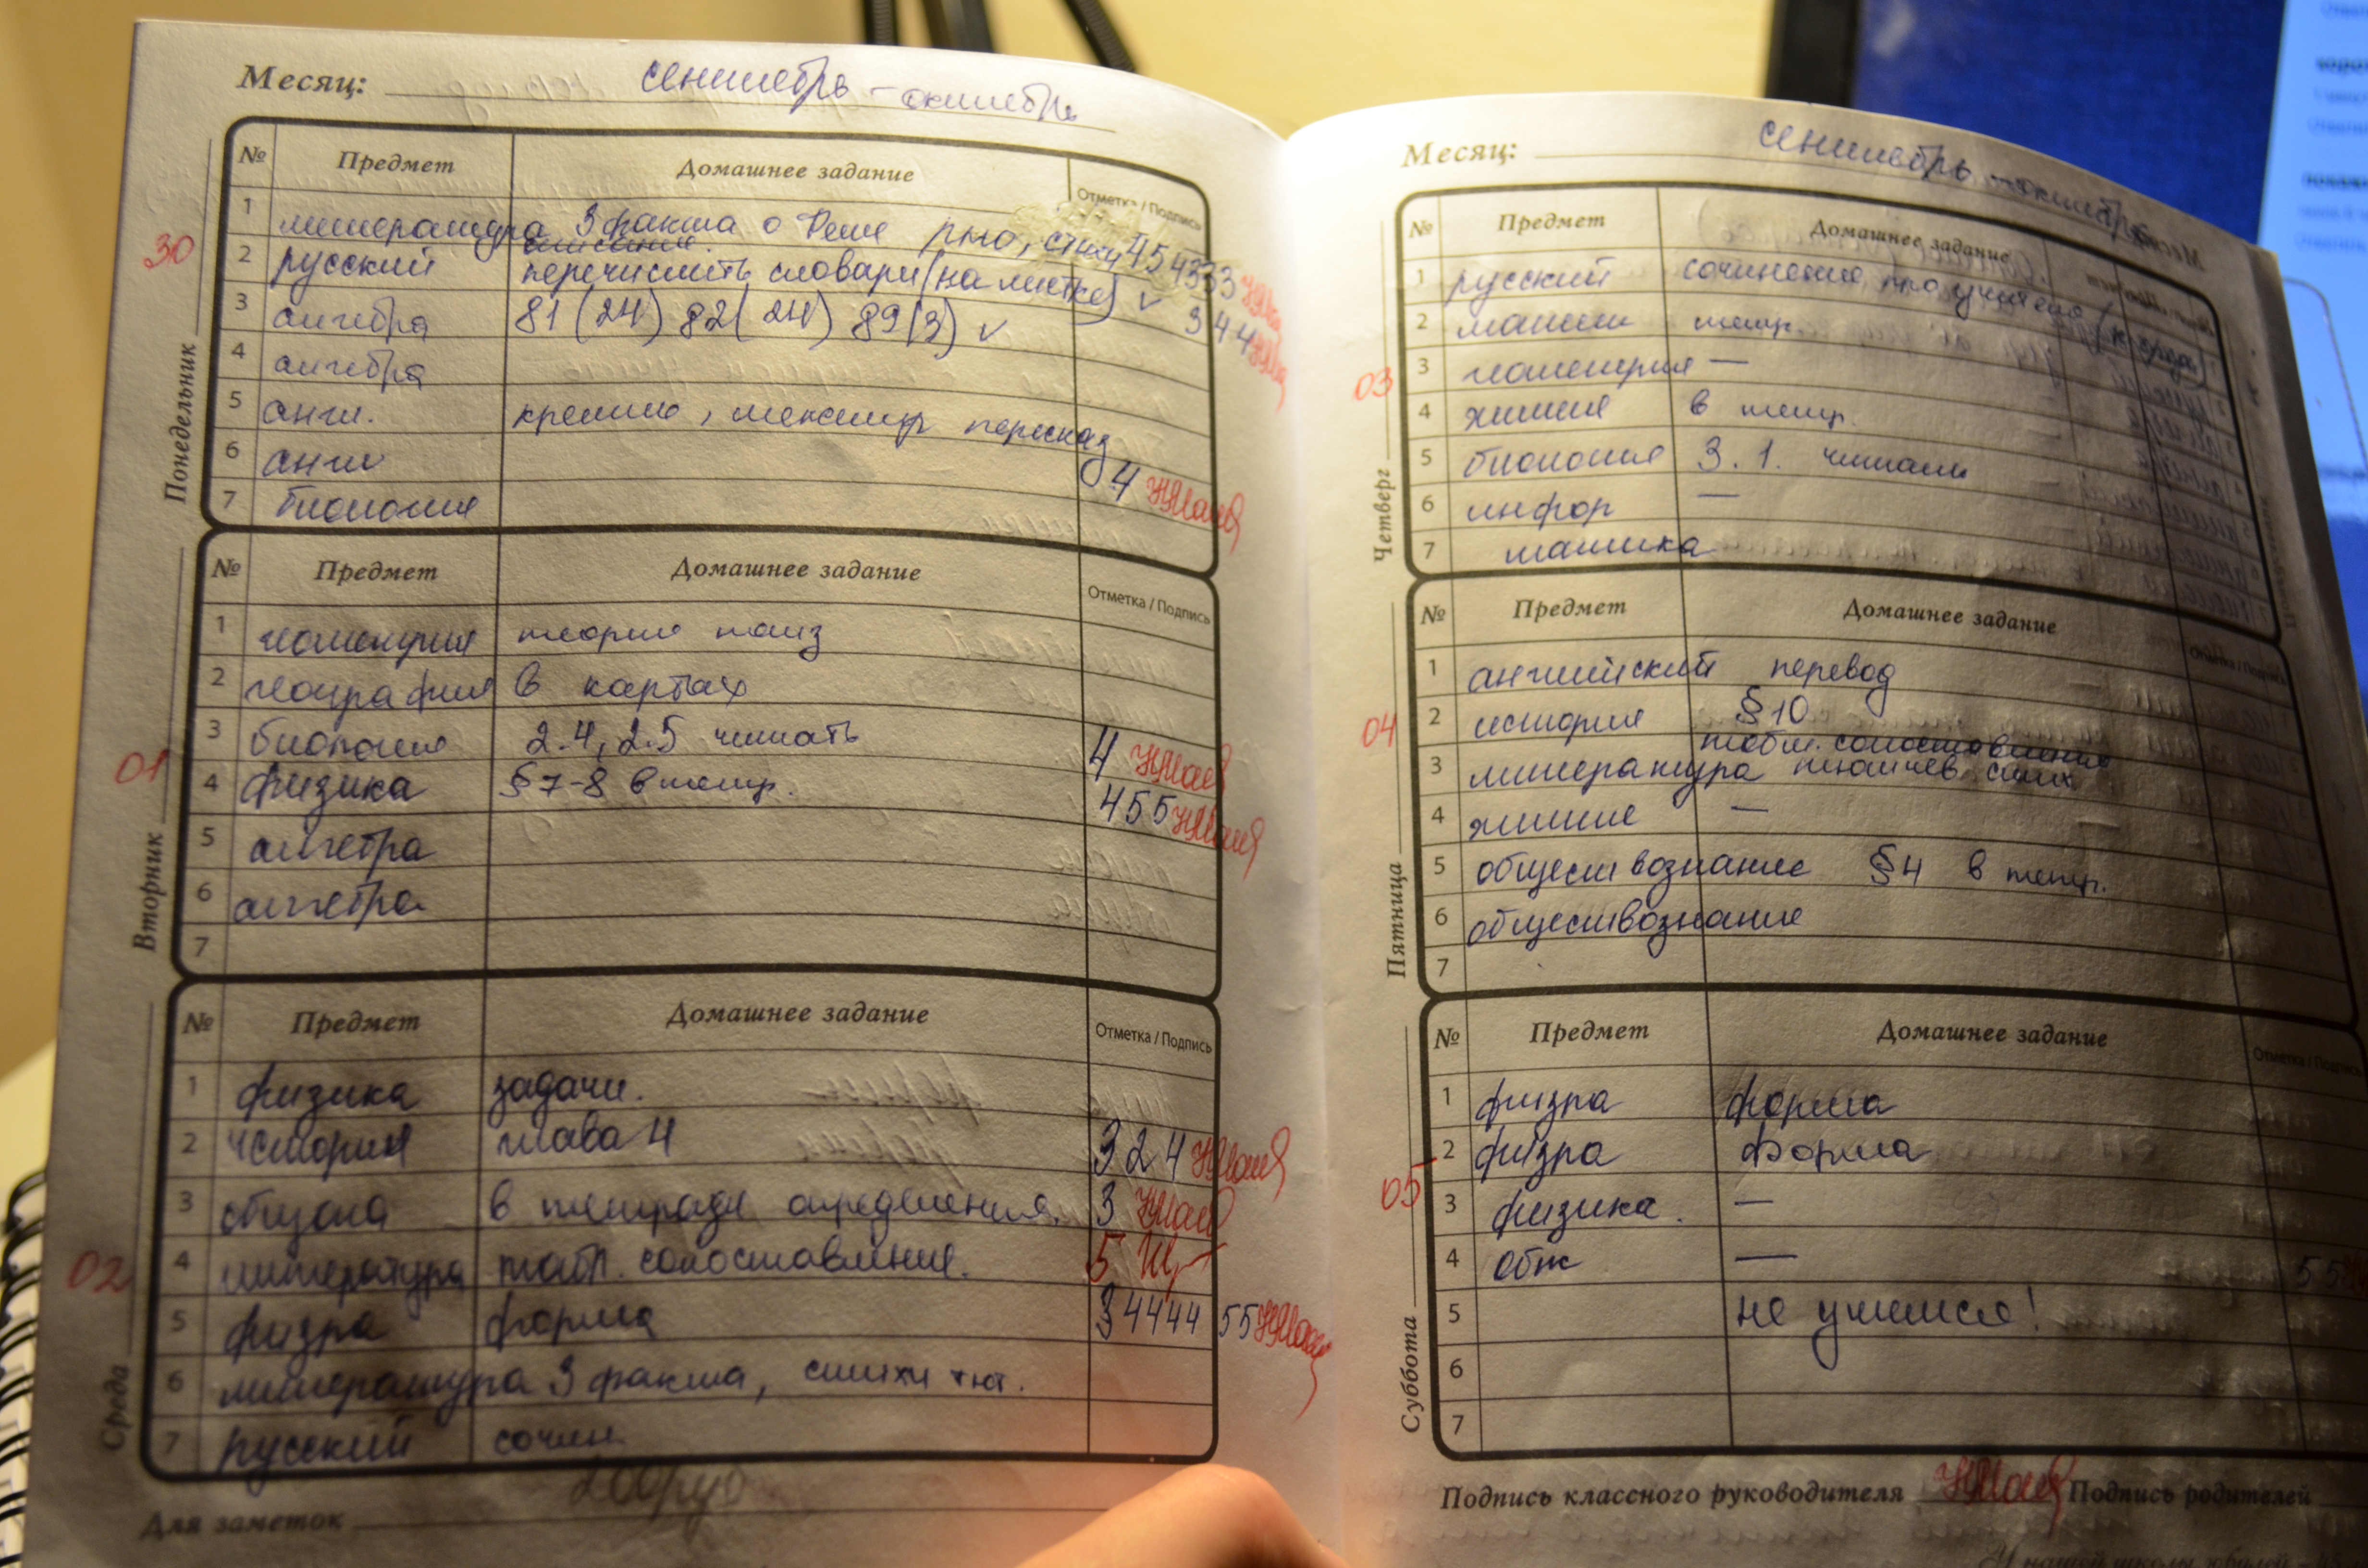 Месяц: сентябрь - октябрь
№ Предмет Домашнее задание Отметка / Подпись
30
Понедельник
1 литература 3 факта о Фете рно, стихи 454333
описание.
2 русский перечислить словари (на листке) ✓ 344
3 алгебра 81 (24) 82 (24) 89 (3) ✓
4 алгебра
5 англ. кремлю, пересказ
6 англ
7 биология 4
№ Предмет Домашнее задание Отметка / Подпись
01
Вторник
1 геометрия теорию
2 география в картах
3 биология 2.4, 2.5 читать 4
4 физика § 7-8 в тетр. 455
5 алгебра
6 алгебра
7
№ Предмет Домашнее задание Отметка / Подпись
02
Среда
1 физика задачи.
2 история глава 4 324
3 общага в тетради определения. 3
4 литература табл. сопоставление. 5
5 физра форма 3444455
6 литература 3 факта, стихи тют.
7 русский сочин.
200руб
Для заметок
Месяц: сентябрь - октябрь
№ Предмет Домашнее задание
03
Четверг
1 русский сочинение про учителя (к среде)
2 матем тетр.
3 геометрия —
4 химия в тетр.
5 биология 3.1. читать
6 инфор —
7 матика
№ Предмет Домашнее задание Отметка / Подпись
04
Пятница
1 английский перевод
2 история § 10
табл. сопоставление
3 литература тютчев стих
4 химия —
5 обществознание § 4 в тетр.
6 обществознание
7
№ Предмет Домашнее задание Отметка / Подпись
05
Суббота
1 физра форма
2 физра форма
3 физика. —
4 обж — 55
5 не учимся!
6
7
Подпись классного руководителя Подпись родителей